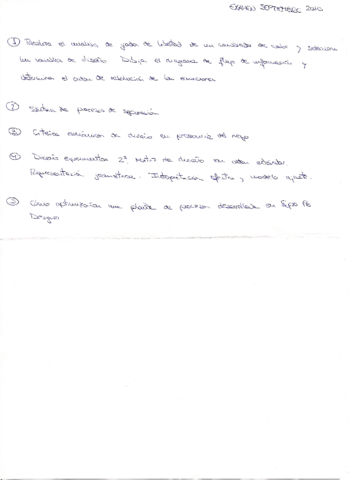 EXAMEN SEPTIEMBRE 2010
① Realiza el análisis de grados de libertad de un cambiador de calor y selecciona
las variables de diseño. Dibuja el diagrama de flujo de información y
determina el orden de resolución de las ecuaciones
② Síntesis de procesos de separación
③ Criterios económicos de diseño en presencia del riesgo
④ Diseño experimentos 2³. Matriz de diseño en orden estándar.
Representación geométrica. Interpretación efectos y modelo ajuste.
⑤ Cómo optimizarías una planta de procesos desarrollada en